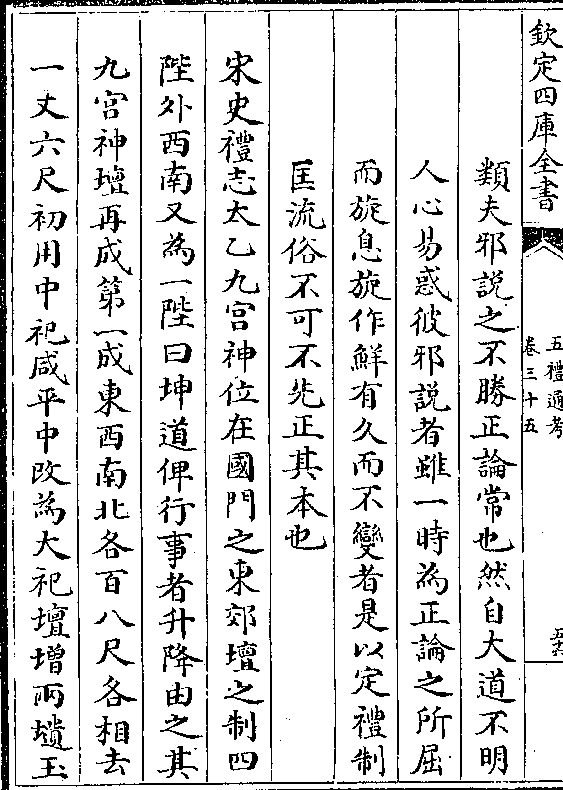 欽定四庫全書
五禮通考
卷三十五
類夫邪說之不勝正論常也然自大道不明
人心易惑彼邪說者雖一時為正論之所屈
而旋息旋作鮮有久而不變者是以定禮制
匡流俗不可不先正其本也
宋史禮志太乙九宮神位在國門之東郊壇之制四
陛外西南又為一陛曰坤道俾行事者升降由之其
九宮神壇再成第一成東西南北各百八尺各相去
一丈六尺初用中祀咸平中改為大祀壇增兩壝玉